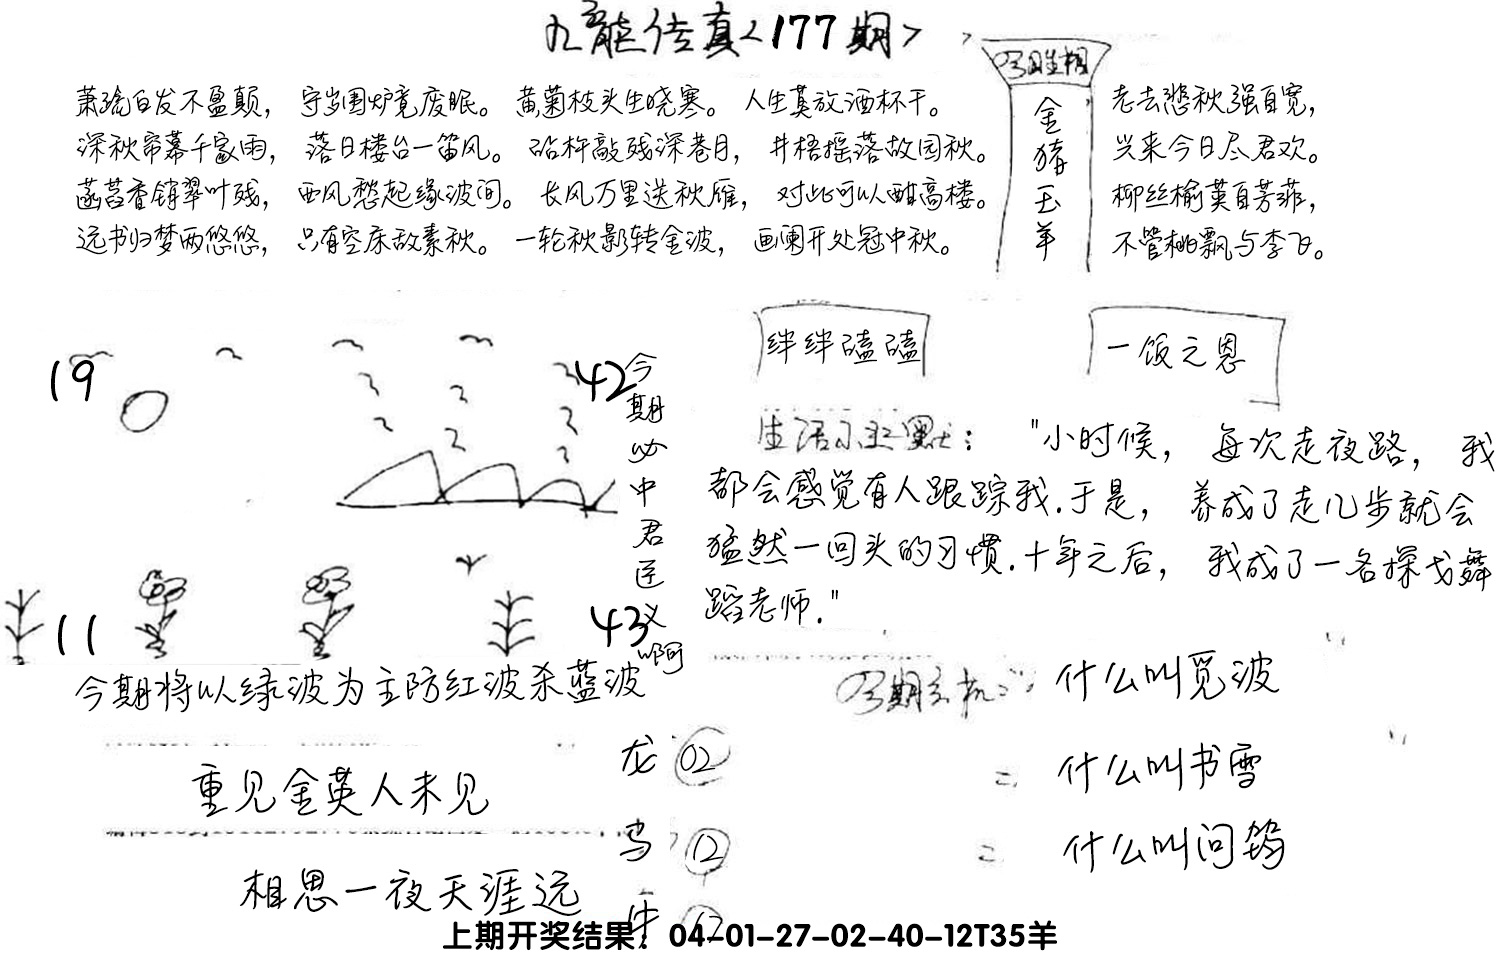 九龙传真<177期>
今日生相
金猪玉羊
萧疏白发不盈颠，守岁围炉竟废眠。黄菊枝头生晓寒。人生莫放酒杯干。
深秋帘幕千家雨，落日楼台一笛风。砧杵敲残深巷月，井梧摇落故园秋。
菡萏香销翠叶残，西风愁起绿波间。长风万里送秋雁，对此可以酣高楼。
远书归梦两悠悠，只有空床敌素秋。一轮秋影转金波，画阑开处冠中秋。
老去悲秋强自宽，
兴来今日尽君欢。
柳丝榆荚自芳菲，
不管桃飘与李飞。
19
42
11
43
今期必中君臣义啊
绊绊磕磕
一饭之恩
生活小幽默："小时候，每次走夜路，我
都会感觉有人跟踪我.于是，养成了走几步就会
猛然一回头的习惯.十年之后，我成了一名探戈舞
蹈老师."
今期将以绿波为主防红波杀蓝波
今期玄机
什么叫觅波
什么叫书雪
什么叫问鸩
重见金英人未见
相思一夜天涯远
龙 02
鸟 12
牛 12
上期开奖结果：04-01-27-02-40-12T35羊